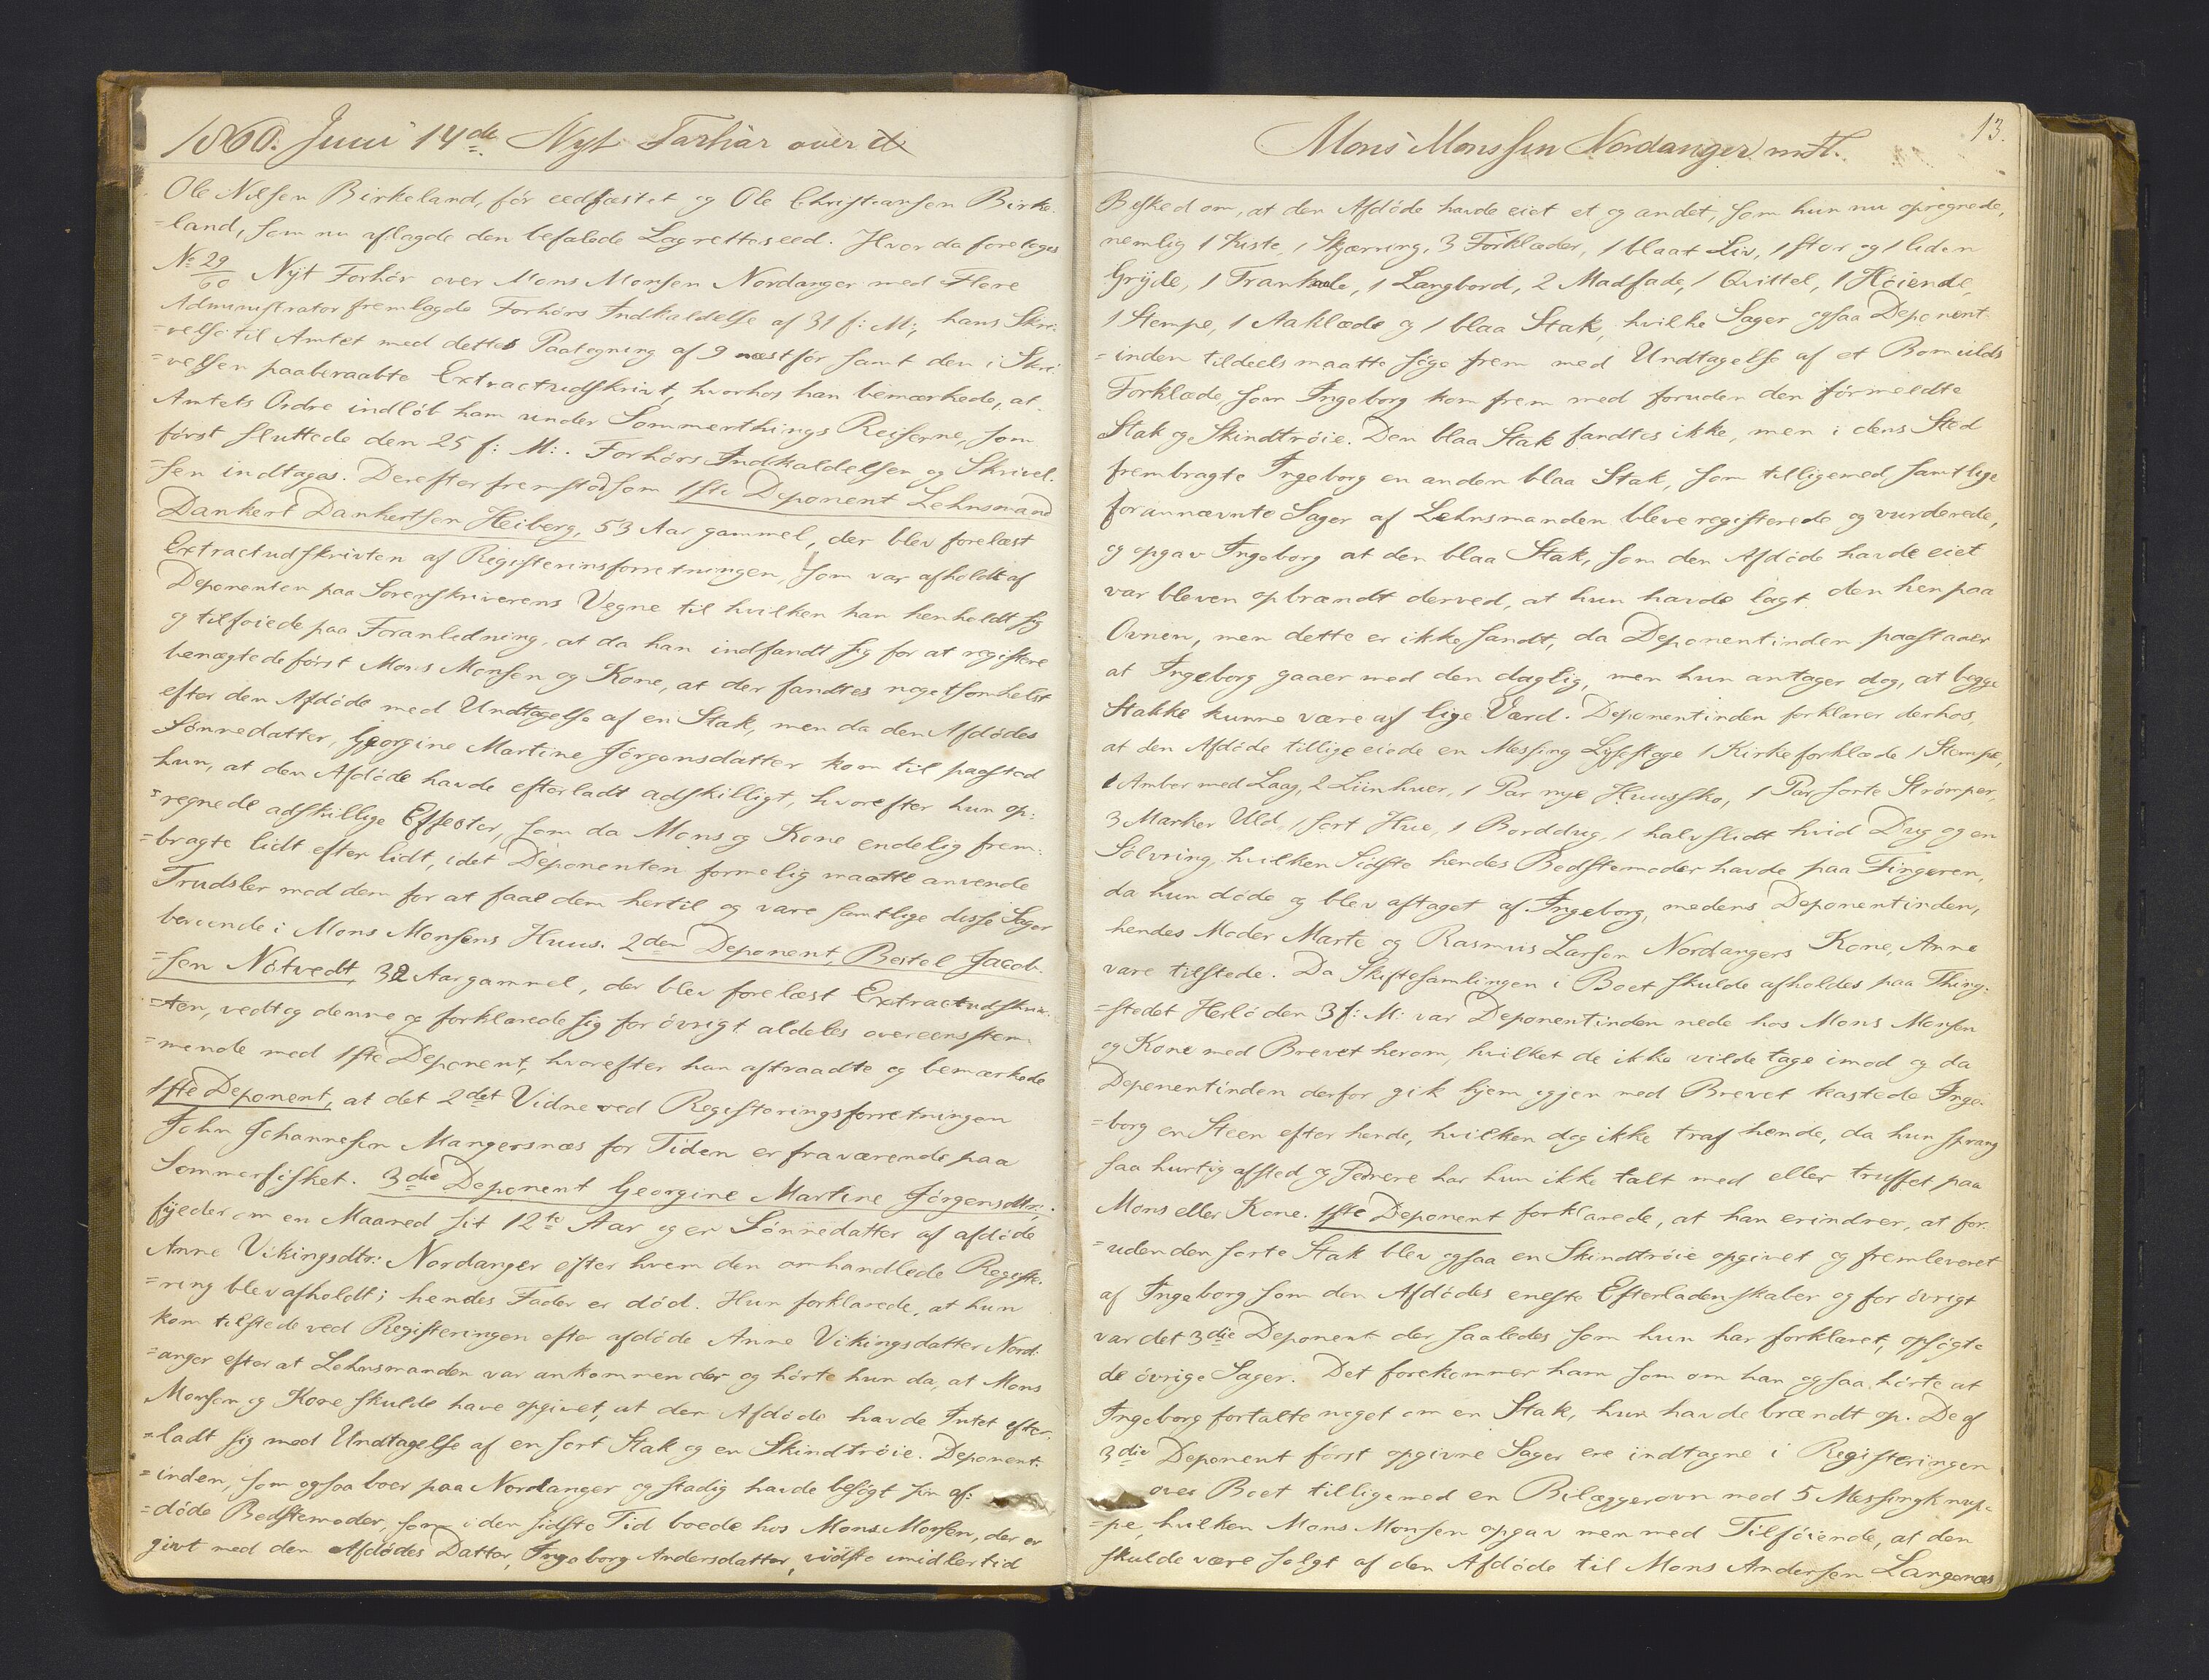 1860. Juni 14de Nyt Forhør over
Ole Nilsen Birkeland, før eedfæstet og Ole Christiansen Birke-
=land, som nu aflagde den befalede Lagretteseed. Hvor da foretoges
No 29/60 Nyt Forhør over Mons Monsen Nordanger med Flere
Administrator fremlagde Forhørs Indkaldelse af 31 f: M:, hans Skri-
=velse til Amtet med dettes Paategning af 9 næstfør samt den i Skri-
=velsen paaberaabte Extractudskrivt, hvorhos han bemærkede, at
Amtets Ordre indløb ham under Sommerthings Reiserne, som
først sluttede den 25 f: M:. Forhørs Indkaldelsen og Skrivel-
=sen indtages. Derefter fremstod som 1ste Deponent Lehnsmand
Dankert Dankertsen Heiberg, 53 Aar gammel, der blev forelæst
Extractudskrivten af Registerinsforretningen, som var afholdt af
Deponenten paa Sorenskriverens Vegne til hvilken han henholdt sig
og tilføiede paa Foranledning, at da han indfandt sig for at registere
benægtede først Mons Monsen og Kone, at der fandtes nogetsomhelst
efter den Afdøde med Undtagelse af en Stak, men da den Afdødes
Sønnedatter, Georgine Martine Jørgensdatter kom til paastod
hun, at den Afdøde havde efterladt adskilligt, hvorefter hun op-
=regnede adskillige Effecter, som da Mons og Kone endelig frem-
=bragte lidt efter lidt, idet Deponenten formelig maatte anvende
Trudsler mod dem for at faae dem hertil og vare samtlige disse Sager
beroende i Mons Monsens Huus. 2den Deponent Bertel Jacob-
=sen Nøtvedt, 32 Aar gammel, der blev forelæst Extractudskriv-
=ten, vedtog denne og forklarede sig for øvrigt aldeles overeenstem-
=mende med 1ste Deponent, hvorefter han aftraadte og bemærkede
1ste Deponent, at det 2det Vidne ved Registeringsforretningen
John Johannesen Mangersnæs for Tiden er fraværende paa
Sommerfisket. 3die Deponent Georgine Martine Jørgensdtr:
fylder om en Maaned sit 12te Aar og er Sønnedatter af afdøde
Anne Vikingsdtr: Nordanger efter hvem den omhandlede Registe-
=ring blev afholdt; hendes Fader er død. Hun forklarede, at hun
kom tilstede ved Registeringen efter afdøde Anne Vikingsdatter Nord-
=anger efter at Lehnsmanden var ankommen der og hørte hun da, at Mons
Monsen og Kone skulde have opgivet, at den Afdøde havde Intet efter-
=ladt sig med Undtagelse af en sort Stak og en Skindtrøie. Deponent-
=inden, som ogsaa boer paa Nordanger og stadig havde besøgt sin af-
=døde Bedstemoder, som i den sidste Tid boede hos Mons Monsen, der er
givt med den Afdødes Datter, Ingeborg Andersdatter, vidste imidlertid
13.
Mons Monssen Nordanger m.fl.
Besked om, at den Afdøde havde eiet et og andet, som hun nu opregnede,
nemlig 1 Kiste, 1 Skjærring, 3 Forklæder, 1 blaat Liv, 1 stor og 1 liden
Gryde, 1 1 Langbord, 2 Madfade, 1 Qvittel, 1 Høiende,
1 Stempe, 1 Aaklæde og 1 blaa Stak, hvilke Sager ogsaa Deponent-
=inden tildeels maatte søge frem med Undtagelse af et Bomulds
Forklæde, som Ingeborg kom frem med foruden den førmeldte
Stak og Skindtrøie. Den blaa Stak fandtes ikke, men i dens Sted
frembragte Ingeborg en anden blaa Stak, som tilligemed samtlige
forannævnte Sager af Lehnsmanden bleve registerede og vurderede,
og opgav Ingeborg at den blaa Stak, som den Afdøde havde eiet
var bleven opbrændt derved, at hun havde lagt den hen paa
Ovnen, men dette er ikke sandt, da Deponentinden paastaaer
at Ingeborg gaaer med den daglig, men hun antager dog, at begge
Stakke kunne være af lige Værd. Deponentinden forklarer derhos,
at den Afdøde tillige eiede en Messing Lysestage 1 Kirkeforklæde 1 Stempe,
1 Amber med Laag, 2 Liinhuer, 1 Par nye Huussko, 1 Par sorte Strømper,
3 Marker Uld, 1 sort Hue, 1 Borddug, 1 halvslidt hvid Dug og en
Sølvring, hvilken Sidste hendes Bedstemoder havde paa Fingeren,
da hun døde og blev aftaget af Ingeborg, medens Deponentinden,
hendes Moder Marte og Rasmus Larsen Nordangers Kone, Anne
vare tilstede. Da Skiftesamlingen i Boet skulde afholdes paa Thing-
=stedet Herlø den 3 f: M: var Deponentinden nede hos Mons Monsen
og Kone med Brevet herom, hvilket de ikke vilde tage imod og da
Deponentinden derfor gik hjem igjen med Brevet kastede Inge-
=borg en Steen efter hende, hvilken dog ikke traf hende, da hun sprang
saa hurtig afsted og senere har hun ikke talt med eller truffet paa
Mons eller Kone. 1ste Deponent forklarede, at han erindrer, at for-
=uden den sorte Stak blev ogsaa en Skindtrøie opgivet og fremleveret
af Ingeborg som den Afdødes eneste Efterladenskaber og for øvrigt
var det 3die Deponent der, saaledes som hun har forklaret, opsøgte
de øvrige Sager. Det forekommer ham som om han ogsaa hørte at
Ingeborg fortalte noget om en Stak, hun havde brændt op. De af
3die Deponent først opgivne Sager ere indtagne i Registeringen
over Boet tilligemed en Bilæggerovn med 5 Messingknap-
=pe, hvilken Mons Monsen opgav men med Tilføiende, at den
skulde være solgt af den Afdøde til Mons Andersen Langenæs